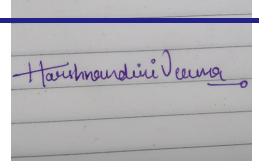 Harshnandini Verma